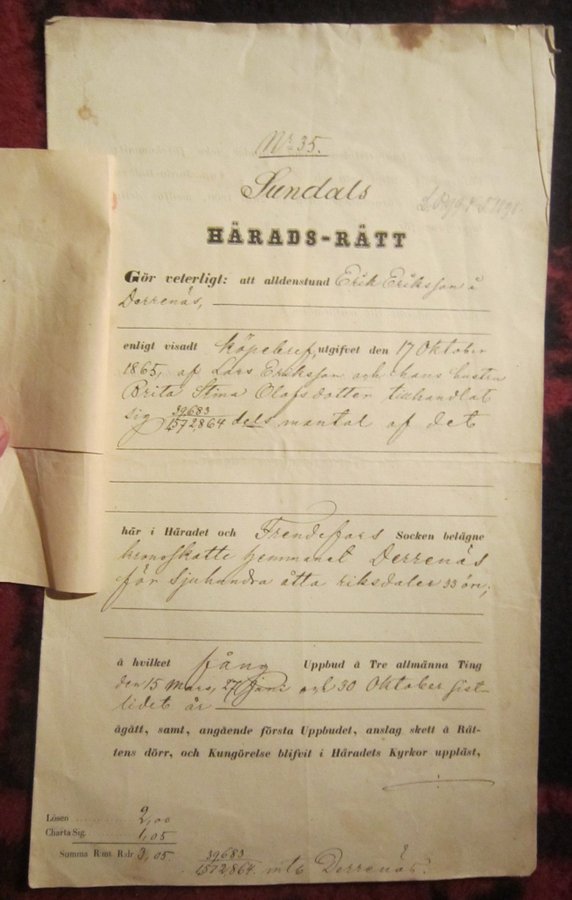 No 35.
Sundals
HÄRADS-RÄTT
Gör veterligt: att alldenstund Erik Eriksson å
Derrenäs,
enligt visadt köpebref, utgifvet den 17 Oktober
1865, af Lars Eriksson och hans hustru
Brita Stina Olofsdotter tillhandlat
sig 39683/1572864 dels mantal af det
här i Häradet och Frendefors Socken belägne
kronoskatte hemmanet Derrenäs
för sjuhundra åtta riksdaler 33 öre;
å hvilket fång Uppbud å Tre allmänna Ting
den 15 Mars, 27 Juni och 30 Oktober sist-
lidet år
ågått, samt, angående första Uppbudet, anslag skett å Rät-
tens dörr, och Kungörelse blifvit i Häradets Kyrkor uppläst,
Lösen 2,00
Charta Sig. 1,05
Summa R:mt R:dr 3,05
39683/1572864 mtl Derrenäs.